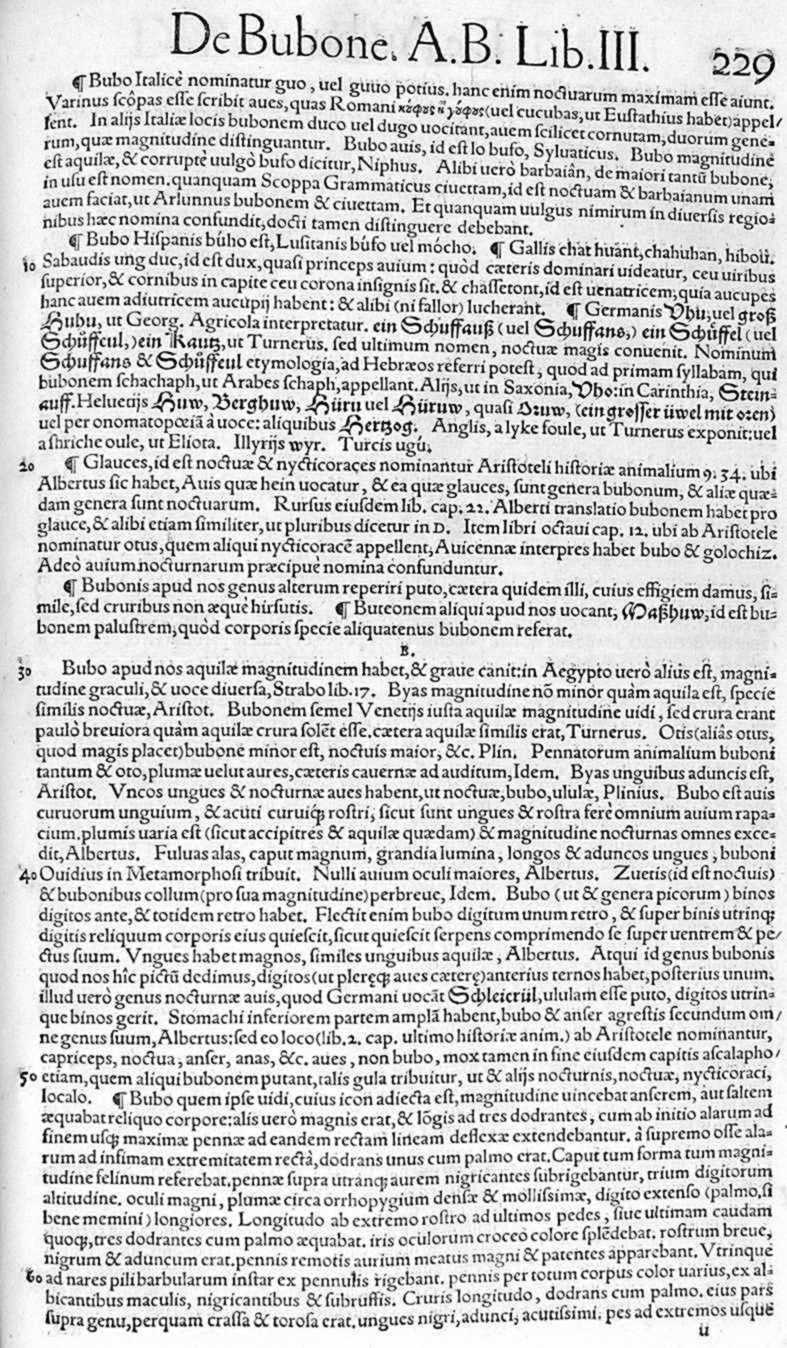 De Bubone. A.B. Lib.III. 229
¶ Bubo Italicè nominatur guo, uel guuo potius. hanc enim noctuarum maximam esse aiunt.
Varinus scôpas esse scribit aues, quas Romani (uel cucubas, ut Eustathius habet) appel/
lent. In alijs Italiæ locis bubonem duco uel dugo uocitant, auem scilicet cornutam, duorum gene-
rum, quæ magnitudine distinguantur. Bubo auis, id est lo bufo, Syluaticus. Bubo magnitudine
est aquilæ, & corruptè uulgò bufo dicitur, Niphus. Alibi uerò barbaiân, de maiori tantũ bubone,
in usu est nomen. quanquam Scoppa Grammaticus ciuettam, id est noctuam & barbaianum unam
auem faciat, ut Arlunnus bubonem & ciuettam. Et quanquam uulgus nimirum in diuersis regio-
nibus hæc nomina confundit, docti tamen distinguere debebant.
¶ Bubo Hispanis búho est, Lusitanis búfo uel mócho. ¶ Gallis chat huant, chahuhan, hibou.
10 Sabaudis ung duc, id est dux, quasi princeps auium: quòd cæteris dominari uideatur, ceu uiribus
superior, & cornibus in capite ceu corona insignis sit. & chassetont, id est uenatricem, quia aucupes
hanc auem adiutricem aucupij habent: & alibi (ni fallor) lucherant. ¶ Germanis Vhu, uel groß
Huhu, ut Georg. Agricola interpretatur. ein Schuffauß (uel Schuffans,) ein Schüffel (uel
Schüffeul,) ein Kautz, ut Turnerus. sed ultimum nomen, noctuæ magis conuenit. Nominum
Schuffans & Schüffeul etymologia, ad Hebræos referri potest, quod ad primam syllabam, qui
bubonem schachaph, ut Arabes schaph, appellant. Alijs, ut in Saxonia, Vho: in Carinthia, Stein-
auff. Heluetijs Huw, Berghuw, Hüru uel Hüruw, quasi Oruw, (ein grosser üwel mit oren)
uel per onomatopœiã à uoce: aliquibus Hertzog. Anglis, a lyke foule, ut Turnerus exponit: uel
a shriche oule, ut Eliota. Illyrijs wyr. Turcis ugu.
20 ¶ Glauces, id est noctuæ & nycticoraces nominantur Aristoteli historiæ animalium 9. 34. ubi
Albertus sic habet, Auis quæ hein uocatur, & ea quæ glauces, sunt genera bubonum, & aliæ quæ-
dam genera sunt noctuarum. Rursus eiusdem lib. cap. 22. Alberti translatio bubonem habet pro
glauce, & alibi etiam similiter, ut pluribus dicetur in D. Item libri octaui cap. 12. ubi ab Aristotele
nominatur otus, quem aliqui nycticoracẽ appellent, Auicennæ interpres habet bubo & golochiz.
Adeò auium nocturnarum præcipuè nomina confunduntur.
¶ Bubonis apud nos genus alterum reperiri puto, cætera quidem illi, cuius effigiem damus, si-
mile, sed cruribus non æquè hirsutis. ¶ Buteonem aliqui apud nos uocant, Maßhuw, id est bu-
bonem palustrem, quòd corporis specie aliquatenus bubonem referat.
B.
30 Bubo apud nos aquilæ magnitudinem habet, & graue canit: in Aegypto uerò alius est, magni-
tudine graculi, & uoce diuersa, Strabo lib. 17. Byas magnitudine nõ minor quàm aquila est, specie
similis noctuæ, Aristot. Bubonem semel Venetijs iusta aquilæ magnitudine uidi, sed crura erant
paulò breuiora quàm aquilæ crura solẽt esse. cætera aquilæ similis erat, Turnerus. Otis (aliâs otus,
quod magis placet) bubone minor est, noctuis maior, &c. Plin. Pennatorum animalium buboni
tantum & oto, plumæ uelut aures, cæteris cauernæ ad auditum, Idem. Byas unguibus aduncis est,
Aristot. Vncos ungues & nocturnæ aues habent, ut noctuæ, bubo, ululæ, Plinius. Bubo est auis
curuorum unguium, & acuti curuiq́ꝫ rostri, sicut sunt ungues & rostra ferè omnium auium rapa-
cium. plumis uaria est (sicut accipitres & aquilæ quædam) & magnitudine nocturnas omnes exce-
dit, Albertus. Fuluas alas, caput magnum, grandia lumina, longos & aduncos ungues, buboni
40 Ouidius in Metamorphosi tribuit. Nulli auium oculi maiores, Albertus. Zuetis (id est noctuis)
& bubonibus collum (pro sua magnitudine) perbreue, Idem. Bubo (ut & genera picorum) binos
digitos ante, & totidem retro habet. Flectit enim bubo digitum unum retro, & super binis utrinqꝫ
digitis reliquum corporis eius quiescit, sicut quiescit serpens comprimendo se super uentrem & pe/
ctus suum. Vngues habet magnos, similes unguibus aquilæ, Albertus. Atqui id genus bubonis
quod nos hîc pictũ dedimus, digitos (ut pleręqꝫ aues cæterę) anterius ternos habet, posterius unum.
illud uerò genus nocturnæ auis, quod Germani uocãt Schleierül, ululam esse puto, digitos utrin-
que binos gerit. Stomachi inferiorem partem amplã habent, bubo & anser agrestis secundum om/
ne genus suum, Albertus: sed eo loco (lib. 2. cap. ultimo historiæ anim.) ab Aristotele nominantur,
capriceps, noctua, anser, anas, &c. aues, non bubo, mox tamen in fine eiusdem capitis ascalapho/
50 etiam, quem aliqui bubonem putant, talis gula tribuitur, ut & alijs nocturnis, noctuæ, nycticoraci,
localo. ¶ Bubo quem ipse uidi, cuius icon adiecta est, magnitudine uincebat anserem, aut saltem
æquabat reliquo corpore: alis uerò magnis erat, & lõgis ad tres dodrantes, cum ab initio alarum ad
finem usqꝫ maximæ pennæ ad eandem rectam lineam deflexæ extendebantur. à supremo osse ala-
rum ad infimam extremitatem rectà, dodrans unus cum palmo erat. Caput tum forma tum magni-
tudine felinum referebat. pennæ supra utranqꝫ aurem nigricantes subrigebantur, trium digitorum
altitudine. oculi magni, plumæ circa orrhopygium densæ & mollissimæ, digito extenso (palmo, si
bene memini) longiores. Longitudo ab extremo rostro ad ultimos pedes, siue ultimam caudam
quoqꝫ, tres dodrantes cum palmo æquabat. iris oculorum croceo colore splẽdebat. rostrum breue,
nigrum & aduncum erat. pennis remotis aurium meatus magni & patentes apparebant. Vtrinque
60 ad nares pili barbularum instar ex pennulis rigebant. pennis per totum corpus color uarius, ex al-
bicantibus maculis, nigricantibus & subruffis. Cruris longitudo, dodrans cum palmo. eius pars
supra genu, perquam crassa & torosa erat. ungues nigri, adunci, acutissimi. pes ad extremos usque
u